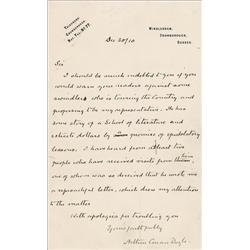 TELEGRAMS
CROWBOROUGH.
NAT. TEL. No 77.
WINDLESHAM,
CROWBOROUGH,
SUSSEX.
Dec 20/10
Sir
I should be much indebted to you if you
would warn your readers against some
swindler who is touring the country and
proposing to be my representative. He has
some story of a School of literature and
extorts dollars by promise of epistolatory
lessons. I have heard from at least two
people who have received visits from
one of whom was so deceived that he wrote me
a reproachful letter, which drew my attention
to the matter
With apologies for troubling you
Yours faithfully
Arthur Conan Doyle